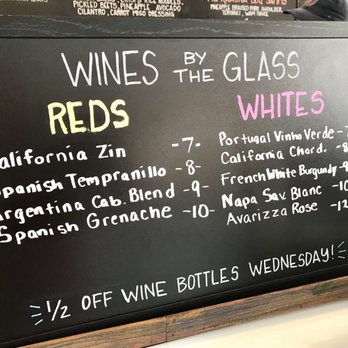 PICKLED BEETS, PINEAPPLE, AVOCADO
CILANTRO, CARROT MISO DRESSING
WINES BY THE GLASS
REDS
California Zin -7-
Spanish Tempranillo -8-
Argentina Cab. Blend -9-
Spanish Grenache -10-
WHITES
Portugal Vinho Verde -7
California Chard. -8
French White Burgundy -9
Napa Sav. Blanc -10
Avarizza Rose -12
1/2 OFF WINE BOTTLES WEDNESDAY!